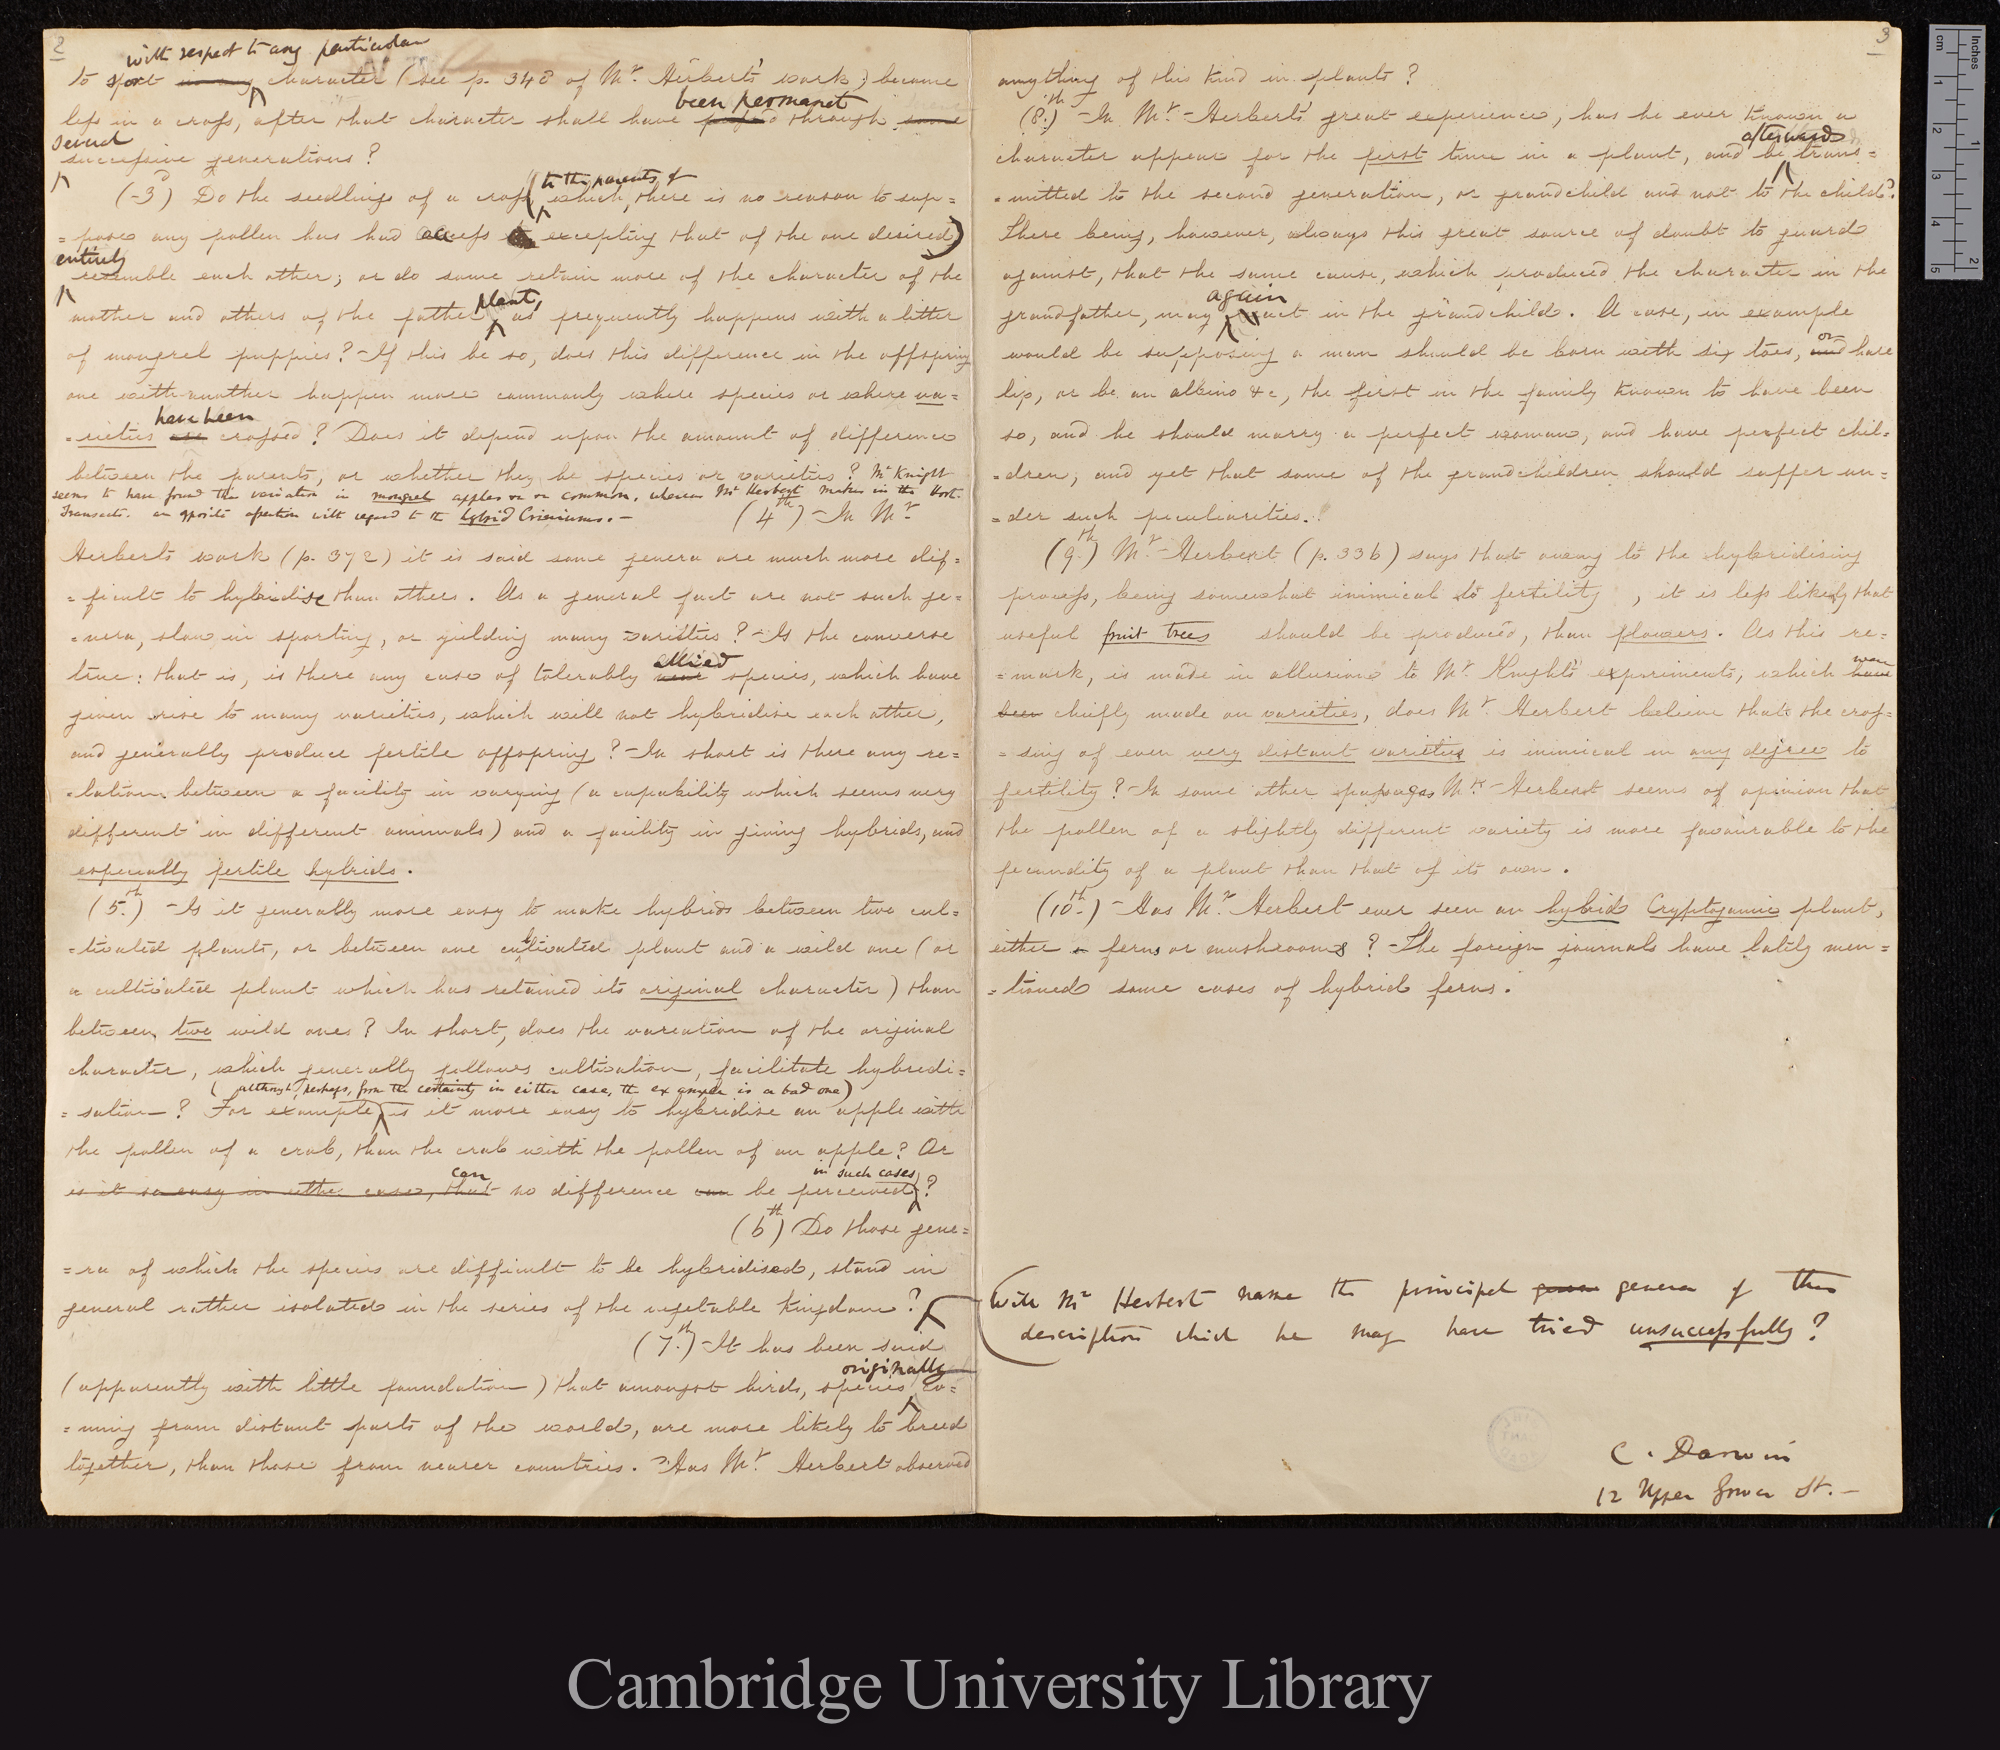 2
with respect to any particular
to sport in any character (see p. 348 of Mr. Herbert's work) become
been permanet
less in a cross, after that character shall have passed through some
several
successive generations?
to the parents of
(3d) Do the seedlings of a cross (which, there is no reason to sup=
=pose any pollen has had access to excepting that of the one desired)
entirely
resemble each other; or do some retain more of the character of the
plant,
mother and others of the father as frequently happens with a litter
of mongrel puppies? — If this be so, does this difference in the offspring
one with another happen more commonly where species or where va=
have been
=rieties are crossed? Does it depend upon the amount of difference
between the parents, or whether they be species or varieties? Mr Knight
seems to have found this variation in mongrel apples not uncommon, whereas Mr Herbert makes in the Hort.
Transacts. an opposite assertion with regard to the hybrid Crinums. —
(4th) — In Mr.
Herbert's work (p. 372) it is said some genera are much more dif=
=ficult to hybridise than others. As a general fact are not such ge=
=nera, slow in sporting, or yielding many varieties? — Is the converse
allied
true: that is, is there any case of tolerably near species, which have
given rise to many varieties, which will not hybridise each other,
and generally produce fertile offspring? — In short is there any re=
=lation between a facility in varying (a capability which seems very
different in different animals) and a facility in giving hybrids, and
especially fertile hybrids.
(5.th) — Is it generally more easy to make hybrids between two cul=
=tivated plants, or between one cultivated plant and a wild one (or
a cultivated plant which has retained its original character) than
between two wild ones? In short, does the variation of the original
character, which generally follows cultivation, facilitate hybridi=
(although, perhaps, from the certainty in either case, the example is a bad one)
=sation —? For example, is it more easy to hybridise an apple with
the pollen of a crab, than the crab with the pollen of an apple? Or
can in such cases
is it so easy in either case, that no difference can be perceived?
(6th) Do those gene=
=ra of which the species are difficult to be hybridised, stand in
general rather isolated in the series of the vegetable kingdom?
(7.th) — It has been said
originally
(apparently with little foundation) that amongst birds, species co=
=ming from distant parts of the world, are more likely to breed
together, than those from nearer countries. — Has Mr. Herbert observed
3
anything of this kind in plants?
(8.th) — In Mr. Herbert's great experience, has he ever known a
afterwards
character appear for the first time in a plant, and be trans=
=mitted to the second generation, or grandchild and not to the child?
There being, however, always this great source of doubt to guard
against, that the same cause, which produced the character in the
again
grandfather, may act in the grandchild. A case, in example
or
would be supposing a man should be born with six toes, and hare
lip, or be an albino &c, the first in the family known to have been
so, and he should marry a perfect woman, and have perfect chil=
=dren, and yet that some of the grandchildren should suffer un=
=der such peculiarities.
(9.th) Mr. Herbert (p. 336) says that owing to the hybridising
process, being somewhat inimical to fertility, it is less likely that
useful fruit trees should be produced, than flowers. As this re=
were
=mark, is made in allusion to Mr. Knight's experiments, which have
been chiefly made on varieties, does Mr. Herbert believe that the cros=
=sing of even very distant varieties is inimical in any degree to
fertility? — In some other passages Mr. Herbert seems of opinion that
the pollen of a slightly different variety is more favourable to the
fecundity of a plant than that of its own.
(10th.) — Has Mr. Herbert ever seen an hybrid Cryptogamic plant,
either ferns or mushrooms? — The foreign journals have lately men=
=tioned some cases of hybrid ferns.
Will Mr Herbert name the principal genera of this
description which he may have tried unsuccessfully?
C. Darwin
12 Upper Gower St. —
cm
Inches
1
2
3
4
5
1
2
Cambridge University Library